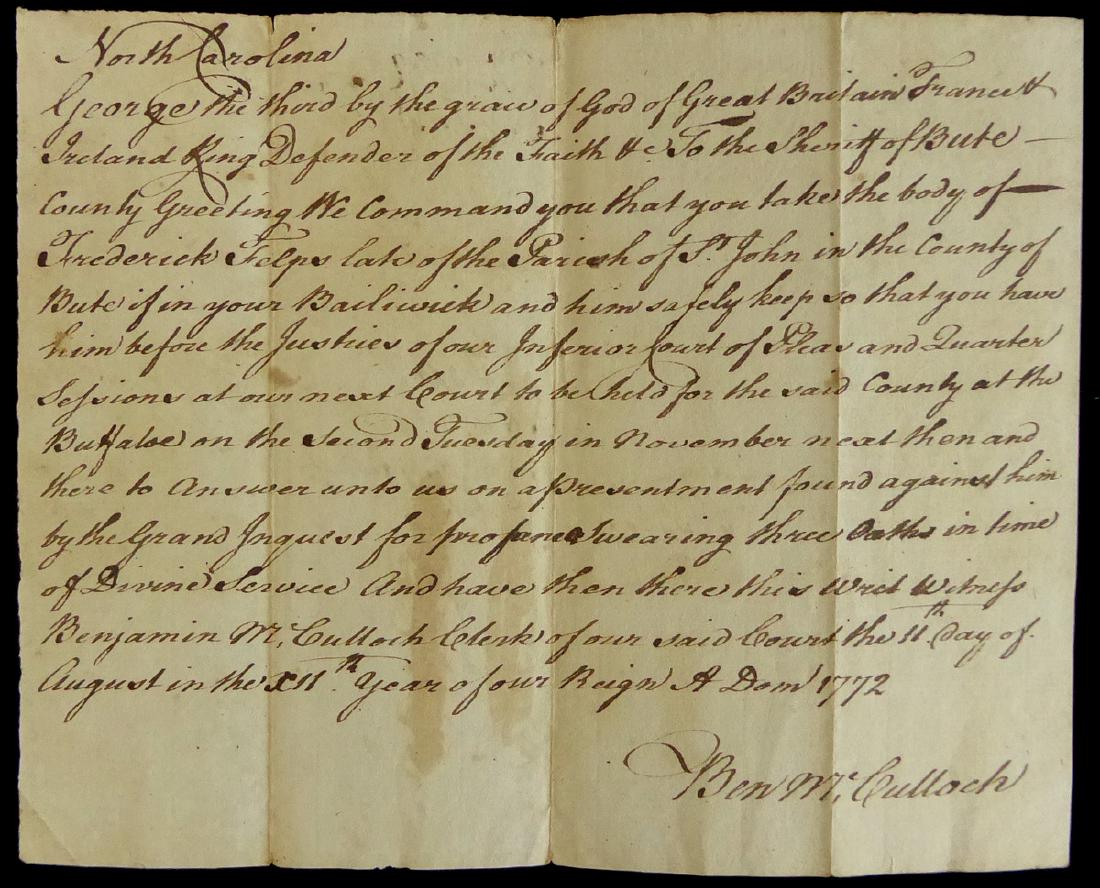 North Carolina
George the third by the grace of God of Great Britain France &
Ireland King Defender of the Faith &c To the Sheriff of Bute —
County Greeting We Command you that you take the body of —
Frederick Felps late of the Parish of St. John in the County of
Bute if in your Bailiwick and him safely keep so that you have
him before the Justices of our Inferior Court of Pleas and Quarter
Sessions at our next Court to be held for the said County at the
Buffaloe on the Second Tuesday in November next then and
there to Answer unto us on a Presentment found against him
by the Grand Inquest for profane Swearing three Oaths in time
of Divine Service And have then there this Writ Witness
Benjamin Mc. Culloch Clerk of our said Court the 11th. Day of
August in the XIIth. Year of our Reign A Dom 1772
Ben Mc. Culloch